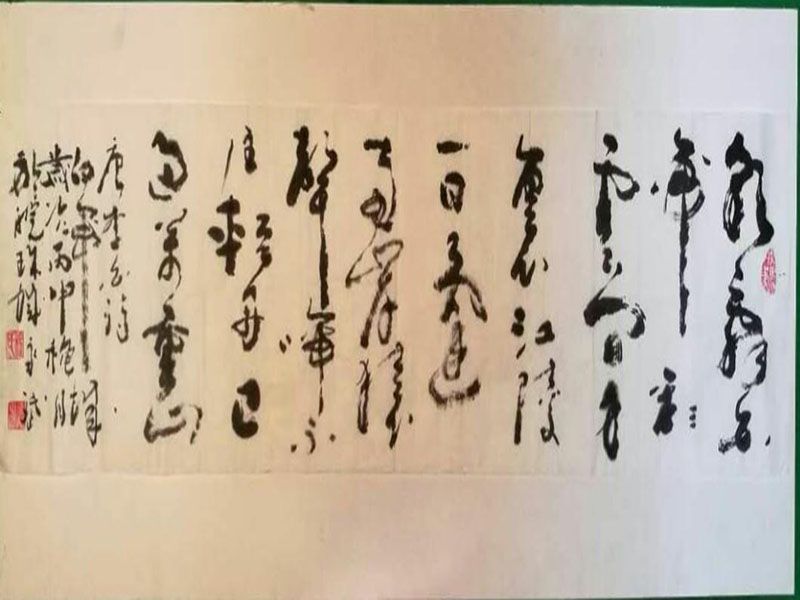 朝辞白
帝彩
云间千
里江陵
一日还
两岸猿
声啼不
住轻舟已
过万重山
唐李白诗
白帝城
岁次丙申
於皖珠城